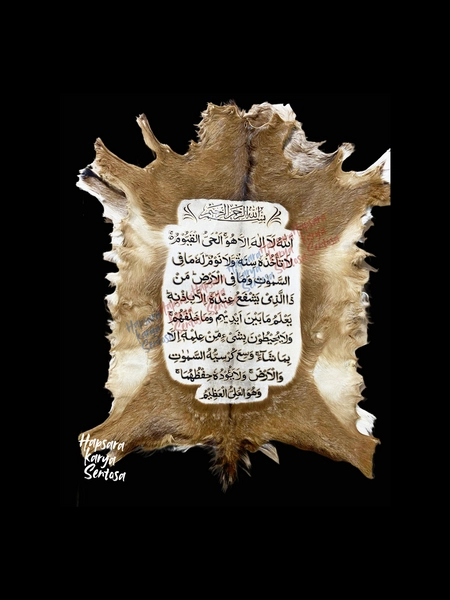 بسم الله الرحمن الرحيم
ٱللَّهُ لَآ إِلَٰهَ إِلَّا هُوَ ٱلْحَىُّ ٱلْقَيُّومُ ۚ
لَا تَأْخُذُهُۥ سِنَةٌ وَلَا نَوْمٌ ۚ لَّهُۥ مَا فِى
السَّمَٰوَٰتِ وَمَا فِى الْأَرْضِ ۗ مَنْ
ذَا الَّذِى يَشْفَعُ عِندَهُۥٓ إِلَّا بِإِذْنِهِۦ ۚ
يَعْلَمُ مَا بَيْنَ أَيْدِيهِمْ وَمَا خَلْفَهُمْ ۖ
وَلَا يُحِيطُونَ بِشَىْءٍ مِّنْ عِلْمِهِۦٓ إِلَّا
بِمَا شَآءَ ۚ وَسِعَ كُرْسِيُّهُ السَّمَٰوَٰتِ
وَالْأَرْضَ ۖ وَلَا يَـُٔودُهُۥ حِفْظُهُمَا ۚ
وَهُوَ الْعَلِىُّ الْعَظِيمُ
Hapsara
Karya
Sentosa